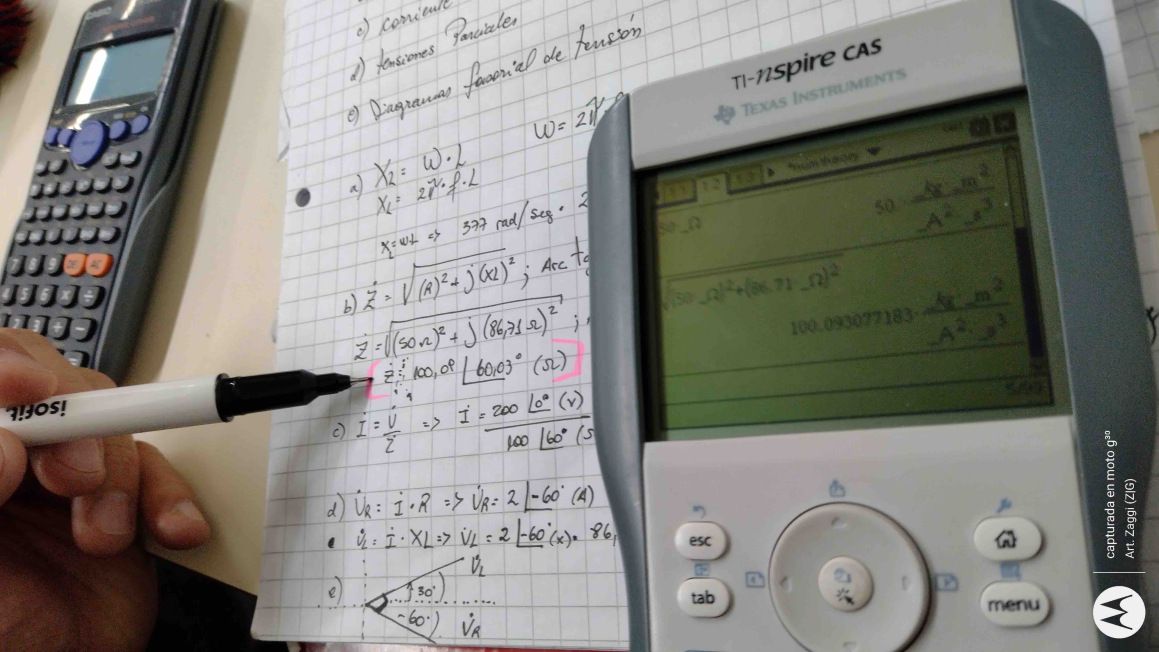 c) corriente
d) tensiones Parciales
e) Diagramas fasorial de tensión
W = 2π
a) XL = W · L
XL = 2π · f · L
XL = WL => 377 rad/seg ·
b) Ż = √(R)² + j(XL)² ; Arc
Ż = √(50Ω)² + j(86,71Ω)² ;
Ż 100,09 ∠60,03° (Ω)
c) İ = V̇ / Ż => İ = 200 ∠0° (V) / 100 ∠60°
d) U̇R = İ · R => U̇R = 2 ∠-60° (A)
U̇L = İ · XL => U̇L = 2 ∠-60° 86,
e) 30° U̇L
-60° U̇R
isofit
TI-nspire CAS
TEXAS INSTRUMENTS
1.1 1.2 1.3
50·_Ω
50·_kg·_m² / _A²·_s³
√(50·_Ω)²+(86.71·_Ω)²
100.093077183·_kg·_m² / _A²·_s³
esc
tab
menu
capturada en moto g³⁰
Art. Zaggi (ZIG)